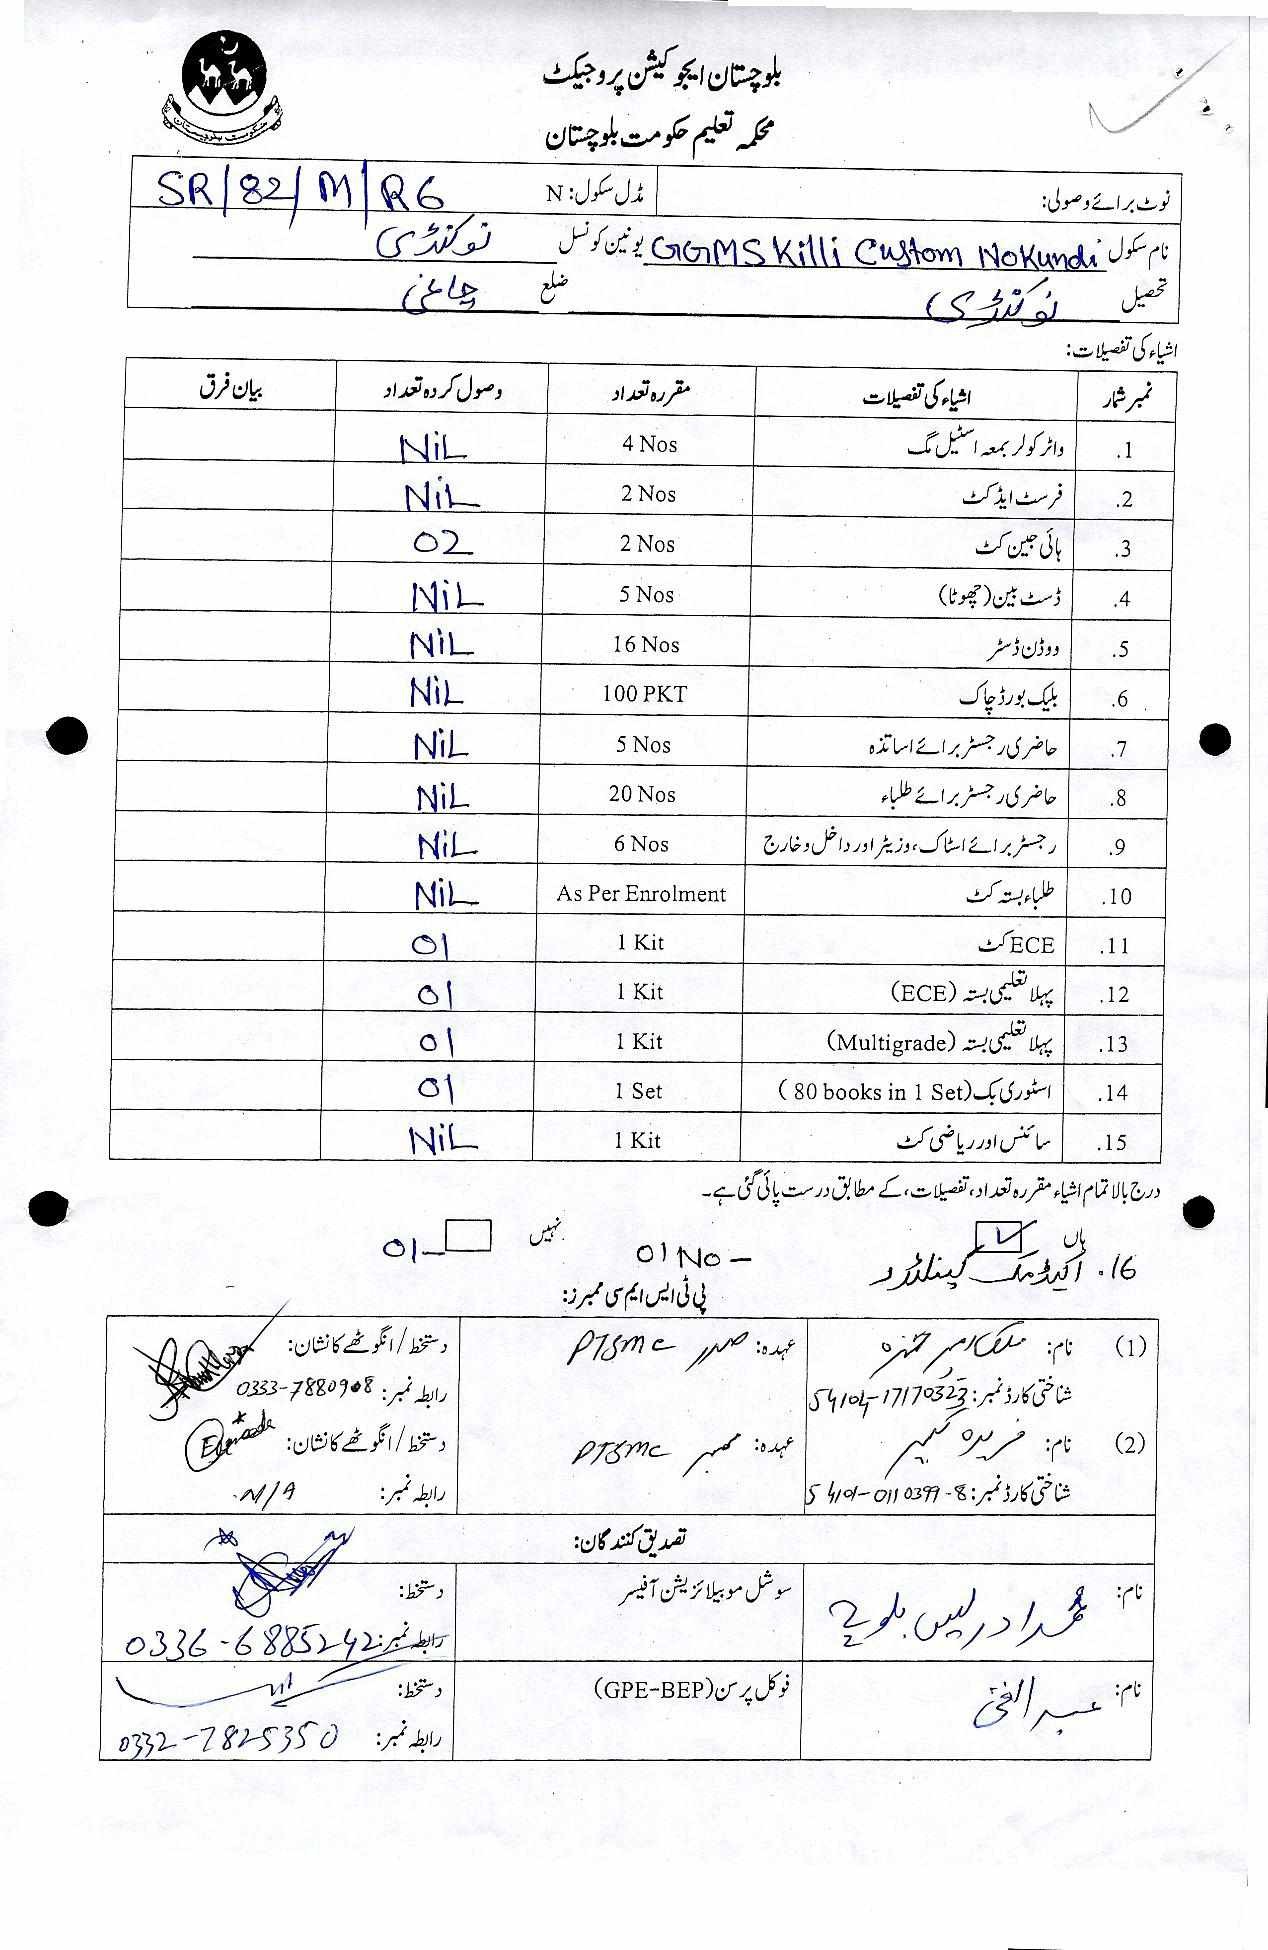 حکومت بلوچستان
بلوچستان ایجوکیشن پروجیکٹ
محکمہ تعلیم حکومت بلوچستان
نوٹ برائے وصولی: مڈل سکول: N SR/82/M/R6
نام سکول GGMS Killi Custom Nokundi یونین کونسل نوکنڈی
تحصیل نوکنڈی ضلع چاغی
اشیاء کی تفصیلات:
نمبر شمار اشیاء کی تفصیلات مقررہ تعداد وصول کردہ تعداد بیان فرق
1. واٹر کولر بمعہ اسٹیل مگ 4 Nos NiL
2. فرسٹ ایڈ کٹ 2 Nos NiL
3. ہائی جین کٹ 2 Nos 02
4. ڈسٹ بین (چھوٹا) 5 Nos NiL
5. ووڈن ڈسٹر 16 Nos NiL
6. بلیک بورڈ چاک 100 PKT NiL
7. حاضری رجسٹر برائے اساتذہ 5 Nos NiL
8. حاضری رجسٹر برائے طلباء 20 Nos NiL
9. رجسٹر برائے اسٹاک، وزیٹر اور داخل و خارج 6 Nos NiL
10. طلباء بستہ کٹ As Per Enrolment NiL
11. ECE کٹ 1 Kit 01
12. پہلا تعلیمی بستہ (ECE) 1 Kit 01
13. پہلا تعلیمی بستہ (Multigrade) 1 Kit 01
14. اسٹوری بک (80 books in 1 Set) 1 Set 01
15. سائنس اور ریاضی کٹ 1 Kit NiL
درج بالا تمام اشیاء مقررہ تعداد، تفصیلات، کے مطابق درست پائی گئی ہے۔
ہاں نہیں
16. اکیڈمک کیلنڈر 01 No – 01
پی ٹی ایس ایم سی ممبرز:
(1) نام: ملک امیر حمزہ عہدہ: صدر PTSMC دستخط/انگوٹھے کا نشان:
شناختی کارڈ نمبر: رابطہ نمبر: 0333-7880908
(2) نام: فریدہ عہدہ: ممبر PTSMC دستخط/انگوٹھے کا نشان:
شناختی کارڈ نمبر: 54101-0110399-8 رابطہ نمبر: N/A
تصدیق کنندگان:
نام: محمد ادریس بلوچ سوشل موبیلائزیشن آفیسر دستخط:
رابطہ نمبر: 0336-6885242
نام: عبدالغنی فوکل پرسن (GPE-BEP) دستخط:
رابطہ نمبر: 0332-7825350